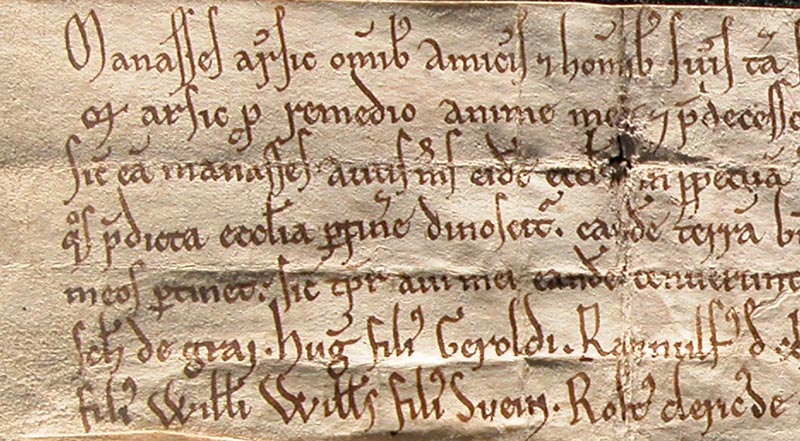 Manasses arsic omib' amicis ⁊ homīb' suis tā
ꝙ arsic ꝓ remedio anime mee ⁊ p̄decess
sic̄ eā manasses auus m̄s eidē eccl̄ in ꝑpetuā
qͦs p̄dicta ecclīa ꝑtinē dinoscit᷑. eandē terrā
meos ꝑtinet. sic tp̄r aui mei eandē tenuerunt
de grai. huḡ fili' Geroldi. Rannulf' d
fili' Willl̄i Will̄s fili' Suein. Rob't' cleric' de